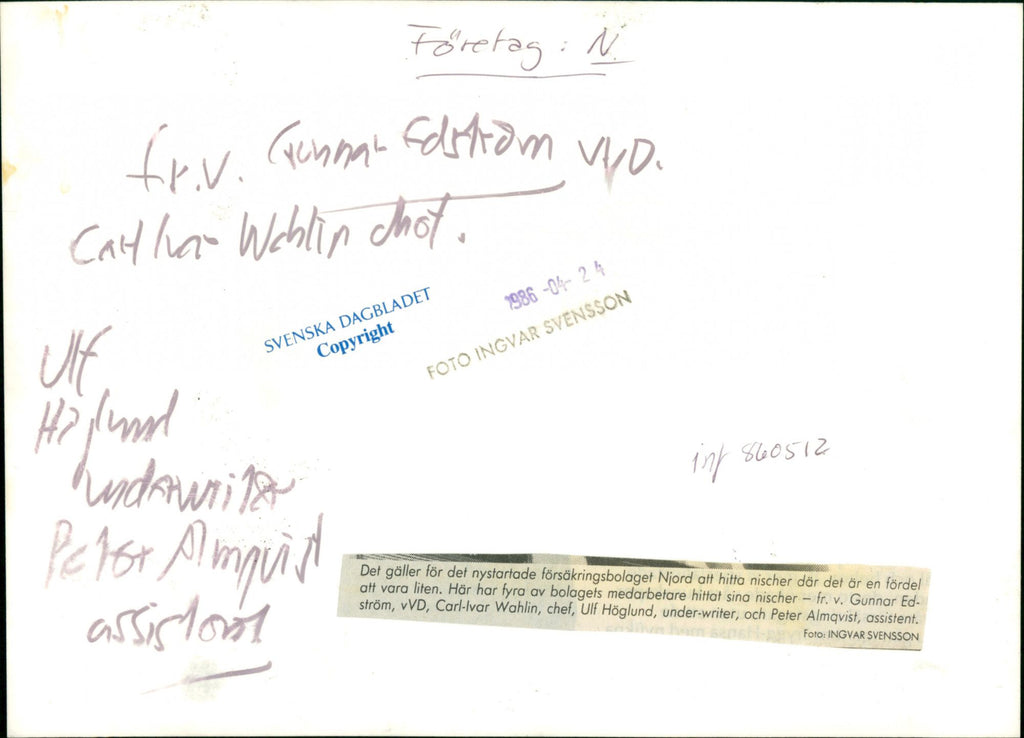 Företag: N
fr.v. Gunnar Edström vVD.
Carl Ivar Wahlin chef.
SVENSKA DAGBLADET
Copyright
1986-04-24
FOTO INGVAR SVENSSON
Ulf
Höglund
underwriter
Peter Almqvist
assistent
inf 860512
Det gäller för det nystartade försäkringsbolaget Njord att hitta nischer där det är en fördel
att vara liten. Här har fyra av bolagets medarbetare hittat sina nischer – fr. v. Gunnar Ed-
ström, vVD, Carl-Ivar Wahlin, chef, Ulf Höglund, under-writer, och Peter Almqvist, assistent.
Foto: INGVAR SVENSSON